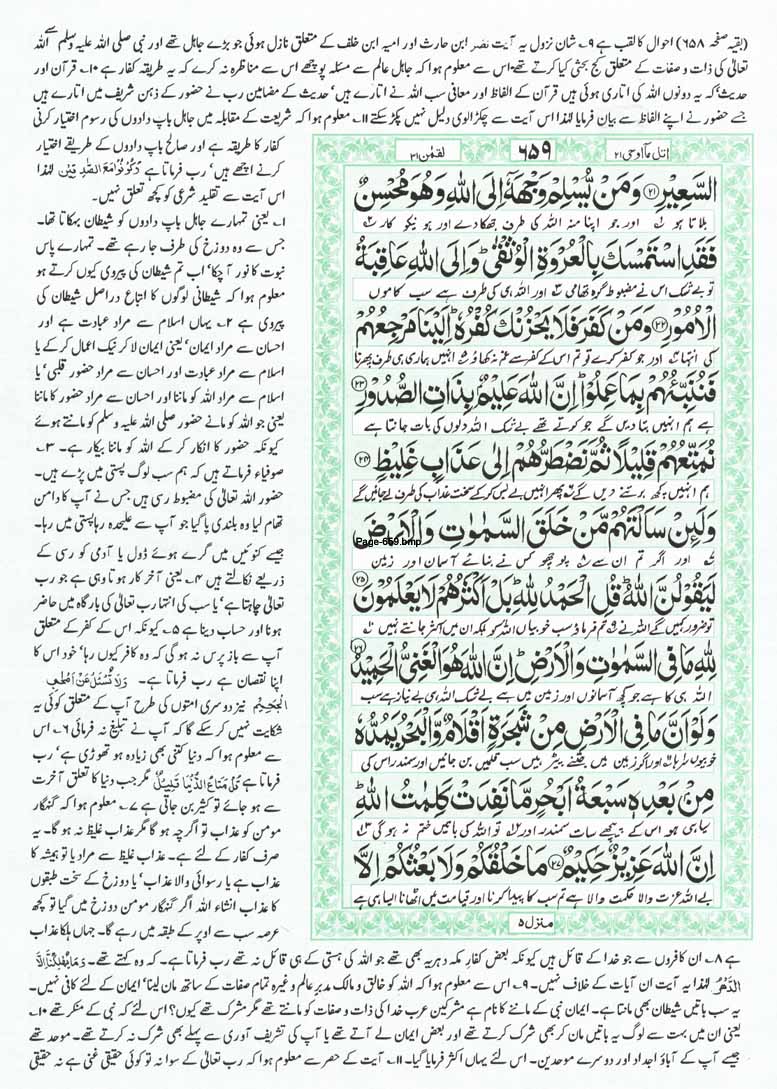 (بقیہ صفحہ ۶۵۸) احوال کا لقب ہے ۹۔ شان نزول یہ آیت نضر ابن حارث اور امیہ ابن خلف کے متعلق نازل ہوئی جو بڑے جاہل تھے اور نبی صلی اللہ علیہ وسلم سے اللہ
تعالیٰ کی ذات و صفات کے متعلق کج بحثی کیا کرتے تھے۔ اس سے معلوم ہوا کہ جاہل عالم سے مسئلہ پوچھے اس سے مناظرہ نہ کرے کہ یہ طریقہ کفار ہے ۱۰۔ قرآن اور
حدیث' کہ یہ دونوں اللہ کی اتاری ہوئی ہیں قرآن کے الفاظ اور معانی سب اللہ نے اتارے ہیں' حدیث کے مضامین رب نے حضور کے ذہن شریف میں اتارے ہیں
جسے حضور نے اپنے الفاظ سے بیان فرمایا لہٰذا اس آیت سے چکڑالوی دلیل نہیں پکڑ سکتے ۱۱۔ معلوم ہوا کہ شریعت کے مقابلہ میں جاہل باپ دادوں کی رسوم اختیار کرنی
کفار کا طریقہ ہے اور صالح باپ دادوں کے طریقے اختیار
کرنے اچھے ہیں' رب فرماتا ہے وَكُوْنُوْا مَعَ الصّٰدِقِيْنَ لہٰذا
اس آیت سے تقلید شرعی کو کچھ تعلق نہیں۔
۱۔ یعنی تمہارے جاہل باپ دادوں کو شیطان بہکاتا تھا۔
جس سے وہ دوزخ کی طرف جا رہے تھے۔ تمہارے پاس
نبوت کا نور آ چکا' اب تم شیطان کی پیروی کیوں کرتے ہو
معلوم ہوا کہ شیطانی لوگوں کا اتباع دراصل شیطان کی
پیروی ہے ۲۔ یہاں اسلام سے مراد عبادت ہے اور
احسان سے مراد ایمان' یعنی ایمان لا کر نیک اعمال کرے یا
اسلام سے مراد عبادت اور احسان سے مراد حضور قلبی' یا
اسلام سے مراد اللہ کو ماننا اور احسان سے مراد حضور کا ماننا
یعنی جو اللہ کو مانے حضور صلی اللہ علیہ وسلم کو مانتے ہوئے
کیونکہ حضور کا انکار کر کے اللہ کو ماننا بیکار ہے۔ ۳۔
صوفیاء فرماتے ہیں کہ ہم سب لوگ پستی میں پڑے ہیں۔
حضور اللہ تعالیٰ کی مضبوط رسی ہیں جس نے آپ کا دامن
تھام لیا وہ بلندی پا گیا جو آپ سے علیحدہ رہا پستی میں رہا۔
جیسے کنوئیں میں گرے ہوئے ڈول یا آدمی کو رسی کے
ذریعے نکالتے ہیں ۴۔ یعنی آخر کار ہوتا وہی ہے جو رب
تعالیٰ چاہتا ہے' یا سب کی انتہا رب تعالیٰ کی بارگاہ میں حاضر
ہونا اور حساب دینا ہے ۵۔ کیونکہ اس کے کفر کے متعلق
آپ سے باز پرس نہ ہو گی کہ وہ کافر کیوں رہا' خود اس کا
اپنا نقصان ہے رب فرماتا ہے۔ وَلَا تُسْئَلُ عَنْ اَصْحٰبِ
الْجَحِيْمِ نیز دوسری امتوں کی طرح آپ کے متعلق کوئی یہ
شکایت نہیں کر سکے گا کہ آپ نے تبلیغ نہ فرمائی ۶۔ اس
سے معلوم ہوا کہ دنیا کتنی بھی زیادہ ہو تھوڑی ہے' رب
فرماتا ہے قُلْ مَتَاعُ الدُّنْيَا قَلِيْلٌ مگر جب دنیا کا تعلق آخرت
سے ہو جائے تو کثیر بن جاتی ہے ۷۔ معلوم ہوا کہ گنہگار
مومن کو عذاب تو اگرچہ ہو گا مگر عذاب غلیظ نہ ہو گا۔ یہ
صرف کفار کے لئے ہے۔ عذاب غلیظ سے مراد یا تو ہمیشہ کا
عذاب ہے یا رسوائی والا عذاب' یا دوزخ کے سخت طبقوں
کا عذاب انشاء اللہ اگر گنہگار مومن دوزخ میں گیا تو کچھ
عرصہ سب سے اوپر کے طبقہ میں رہے گا۔ جہاں ہلکا عذاب
اتل ماآوحی ۲۱ ۶۵۹ لقمٰن ۳۱
السَّعِيْرِ ﴿۲۱﴾ وَمَنْ يُّسْلِمْ وَجْهَهٗٓ اِلَى اللّٰهِ وَهُوَ مُحْسِنٌ
بلاتا ہو اور جو اپنا منہ اللہ کی طرف جھکا دے اور ہو نیکو کار
فَقَدِ اسْتَمْسَكَ بِالْعُرْوَةِ الْوُثْقٰى وَاِلَى اللّٰهِ عَاقِبَةُ
تو بے شک اس نے مضبوط گرہ تھامی اور اللہ ہی کی طرف ہے سب کاموں
الْاُمُوْرِ ﴿۲۲﴾ وَمَنْ كَفَرَ فَلَا يَحْزُنْكَ كُفْرُهٗ اِلَيْنَا مَرْجِعُهُمْ
کی انتہا اور جو کفر کرے تو تم اس کے کفر سے غم نہ کھاؤ انہیں ہماری ہی طرف پھرنا
فَنُنَبِّئُهُمْ بِمَا عَمِلُوْا اِنَّ اللّٰهَ عَلِيْمٌۢ بِذَاتِ الصُّدُوْرِ ﴿۲۳﴾
ہے ہم انہیں بتا دیں گے جو کرتے تھے بے شک اللہ دلوں کی بات جانتا ہے
نُمَتِّعُهُمْ قَلِيْلًا ثُمَّ نَضْطَرُّهُمْ اِلٰى عَذَابٍ غَلِيْظٍ ﴿۲۴﴾
ہم انہیں کچھ برتنے دیں گے پھر انہیں بے بس کر کے سخت عذاب کی طرف لے جائیں گے
وَلَئِنْ سَاَلْتَهُمْ مَّنْ خَلَقَ السَّمٰوٰتِ وَالْاَرْضَ
Page-659.bmp
اور اگر تم ان سے پوچھو کس نے بنائے آسمان اور زمین
لَيَقُوْلُنَّ اللّٰهُ قُلِ الْحَمْدُ لِلّٰهِ بَلْ اَكْثَرُهُمْ لَا يَعْلَمُوْنَ ﴿۲۵﴾
تو ضرور کہیں گے اللہ نے تم فرماؤ سب خوبیاں اللہ کو بلکہ ان میں اکثر جانتے نہیں
لِلّٰهِ مَا فِى السَّمٰوٰتِ وَالْاَرْضِ اِنَّ اللّٰهَ هُوَ الْغَنِىُّ الْحَمِيْدُ ﴿۲۶﴾
اللہ ہی کا ہے جو کچھ آسمانوں اور زمین میں ہے بے شک اللہ ہی بے نیاز ہے سب
وَلَوْ اَنَّ مَا فِى الْاَرْضِ مِنْ شَجَرَةٍ اَقْلَامٌ وَّالْبَحْرُ يَمُدُّهٗ
خوبیوں سراہا اور اگر زمین میں جتنے پیڑ ہیں سب قلمیں بن جائیں اور سمندر اس کی
مِنْۢ بَعْدِهٖ سَبْعَةُ اَبْحُرٍ مَّا نَفِدَتْ كَلِمٰتُ اللّٰهِ
سیاہی ہو اس کے پیچھے سات سمندر اور تو اللہ کی باتیں ختم نہ ہو گی
اِنَّ اللّٰهَ عَزِيْزٌ حَكِيْمٌ ﴿۲۷﴾ مَا خَلْقُكُمْ وَلَا بَعْثُكُمْ اِلَّا
بے اللہ عزت والا حکمت والا ہے تم سب کا پیدا کرنا اور قیامت میں اٹھانا ایسا ہی ہے
منزل ۵
ہے ۸۔ ان کافروں سے جو خدا کے قائل ہیں کیونکہ بعض کفار مکہ دہریہ بھی تھے جو اللہ کی ہستی کے ہی قائل نہ تھے رب فرماتا ہے۔ کہ وہ کہتے تھے۔ وَمَا يُهْلِكُنَا اِلَّا
الدَّهْرُ لہٰذا یہ آیت ان آیات کے خلاف نہیں۔ ۹۔ اس سے معلوم ہوا کہ اللہ کو خالق و مالک مدبر عالم وغیرہ تمام صفات کے ساتھ مان لینا' ایمان کے لئے کافی نہیں۔
یہ سب باتیں شیطان بھی مانتا ہے۔ ایمان نبی کے ماننے کا نام ہے مشرکین عرب خدا کی ذات و صفات کو مانتے تھے مگر مشرک تھے کیوں؟ اس لئے کہ نبی کے منکر تھے ۱۰۔
یعنی ان میں بہت سے لوگ یہ باتیں مان کر بھی شرک کرتے تھے اور بعض ایمان لے آتے تھے یا آپ کی تشریف آوری سے پہلے بھی شرک نہ کرتے تھے۔ موحد تھے
جیسے آپ کے آباؤ اجداد اور دوسرے موحدین۔ اس لئے یہاں اکثر فرمایا گیا۔ ۱۱۔ آیت کے حصر سے معلوم ہوا کہ رب تعالیٰ کے سوا نہ تو کوئی حقیقی غنی ہے نہ حقیقی